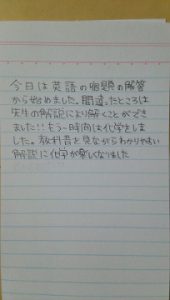 今日は英語の宿題の解答
から始めました。間違ったところは
先生の解説により解くことができ
ました!!もう一時間は化学をしま
した。教科書を見ながらわかりやすい
解説に化学が楽しくなりました